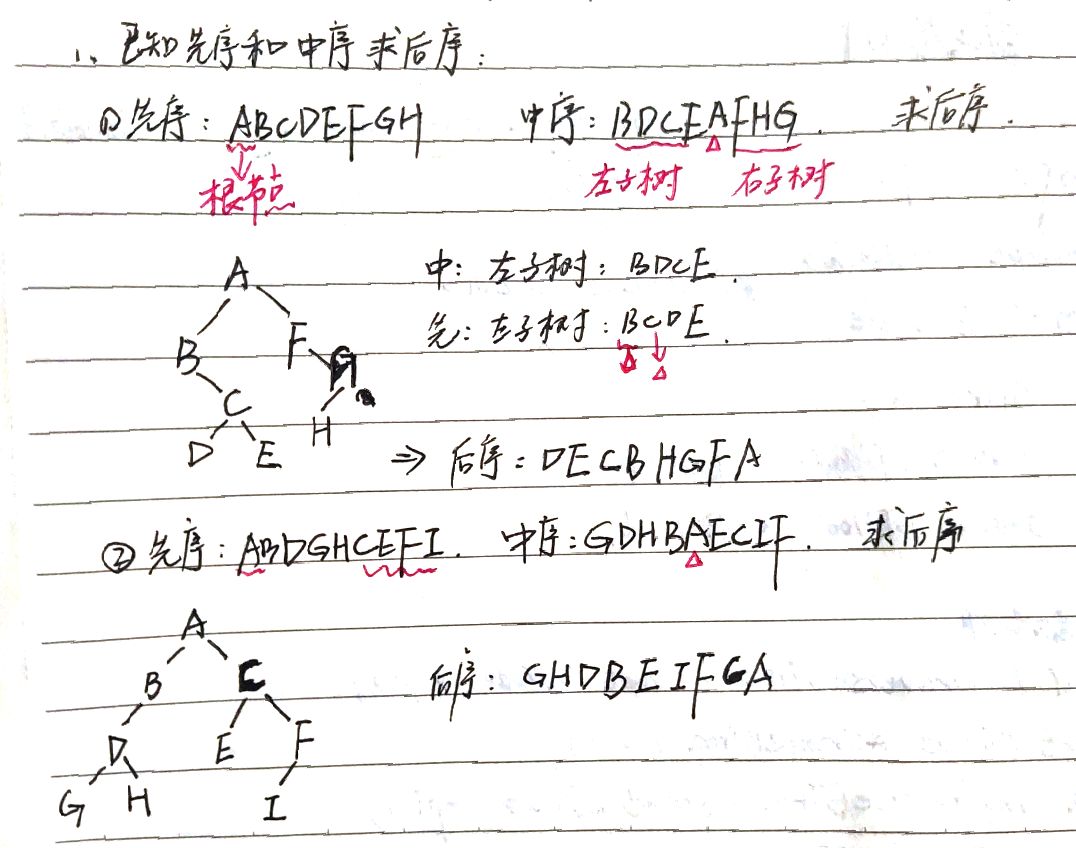 1、已知先序和中序求后序:
①先序: ABCDEFGH 中序: BDCEAFHG. 求后序.
根节点 左子树 右子树
中: 左子树: BDCE.
先: 左子树: BCDE.
A
B F
G
C H
D E
⇒ 后序: DECBHGFA
②先序: ABDGHCEFI. 中序: GDHBAECIF. 求后序
A
B C
后序: GHDBEIFCA
D E F
G H I